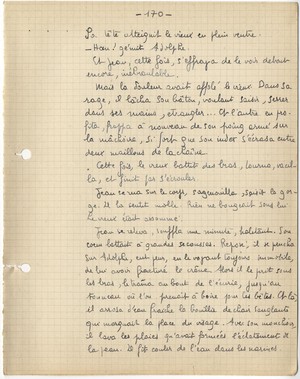 - 170 -
Sa tête atteignit le vieux en plein ventre.
- Han! gémit Adolphe.
Et Jean, cette fois, s'effraya de le voir debout
encore, inébranlable.
Mais la douleur avait affolé le vieux. Dans sa
rage, il lâcha son bâton, voulant saisir, serrer
dans ses mains, étrangler... Et l'autre en pro-
fita, frappa à nouveau de son poing armé sur
la mâchoire, si fort que son index s'écrasa entre
deux maillons de la chaîne.
Cette fois, le vieux battit des bras, tourna, vacil-
la, et finit par s'écrouler.
Jean se rua sur le corps, s'agenouilla, saisit la gor-
ge. Il la sentit molle. Rien ne bougeait sous lui.
Le vieux était assommé.
Jean se releva, souffla une minute, haletant. Son
cœur battait à grandes secousses. Reposé, il se pencha
sur Adolphe, eut peur, en le voyant toujours immobile,
de lui avoir fracturé le crâne. Alors il le prit sous
les bras, le traîna au bout de l'écurie, jusqu'au
tonneau où l'on prenait à boire pour les bêtes. Et là,
il arrosa d'eau fraîche la bouillie de chair sanglante
que marquait la place du visage. Avec son mouchoir,
il lava les plaies qu'avait formées l'éclatement de
la peau. Il fit couler de l'eau dans les narines.